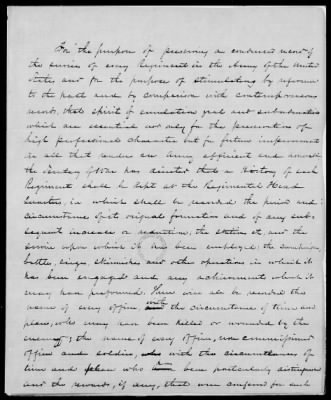 For the purpose of preserving a condensed record of
the service of every Regiment in the Army of the United
States and for the purpose of stimulating by reference
to the past and by comparison with contemporaneous
events, that spirit of emulation zeal and subordination
which are essential not only for the preservation of
high professional character but for future improvement
in all that render an Army efficient and
the Secretary of War has directed that a History of each
Regiment shall be kept at the Regimental Head
Quarters, in which shall be recorded the period and
circumstance of its original formation and of any sub-
sequent increase or reduction, the stations of, and the
service upon which it has been employed, the
battles, sieges, skirmishes and other operations in which it
has been engaged and any achievement which it
may have performed. There will also be recorded the
name of every officer with the circumstances of time and
place, who may have been killed or wounded by the
enemy; the name of every officer, non commissioned
officer and soldier, with the circumstances of
time and place who been particularly distinguished
and the rewards, if any, that were conferred for such